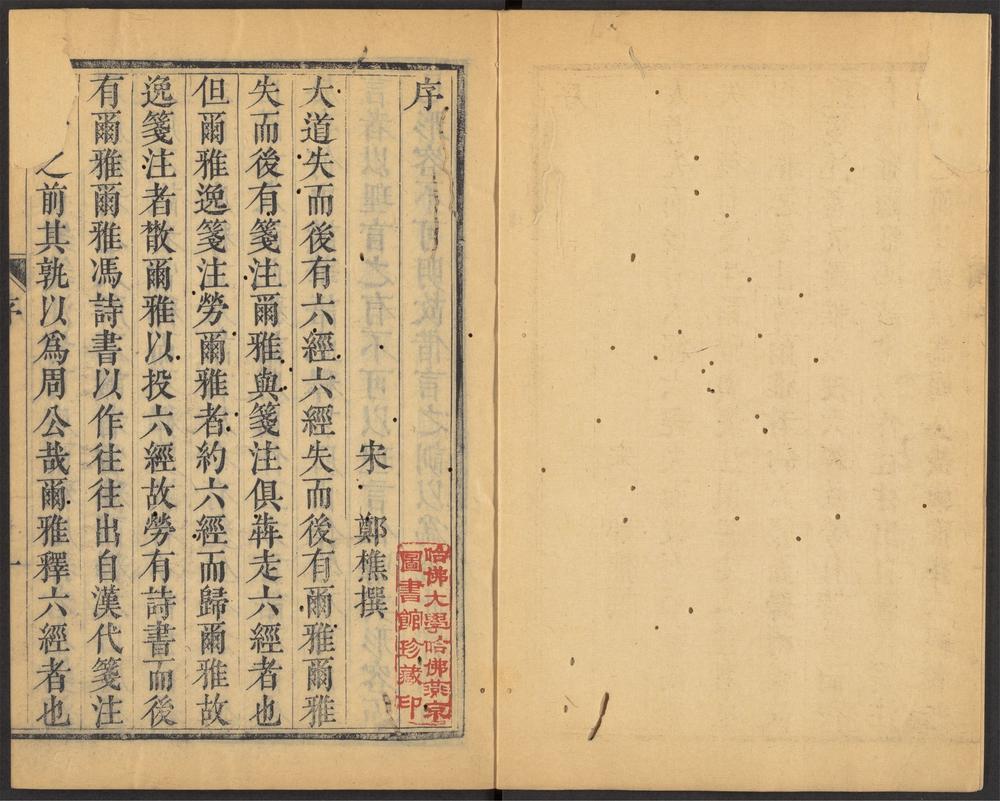 序
宋　鄭樵撰
大道失而後有六經六經失而後有爾雅爾雅
失而後有箋注爾雅與箋注俱犇走六經者也
但爾雅逸箋注勞爾雅者約六經而歸爾雅故
逸箋注者散爾雅以投六經故勞有詩書而後
有爾雅爾雅馮詩書以作往往出自漢代箋注
之前其孰以爲周公哉爾雅釋六經者也
序
一
哈佛大學哈佛燕京
圖書館珍藏印